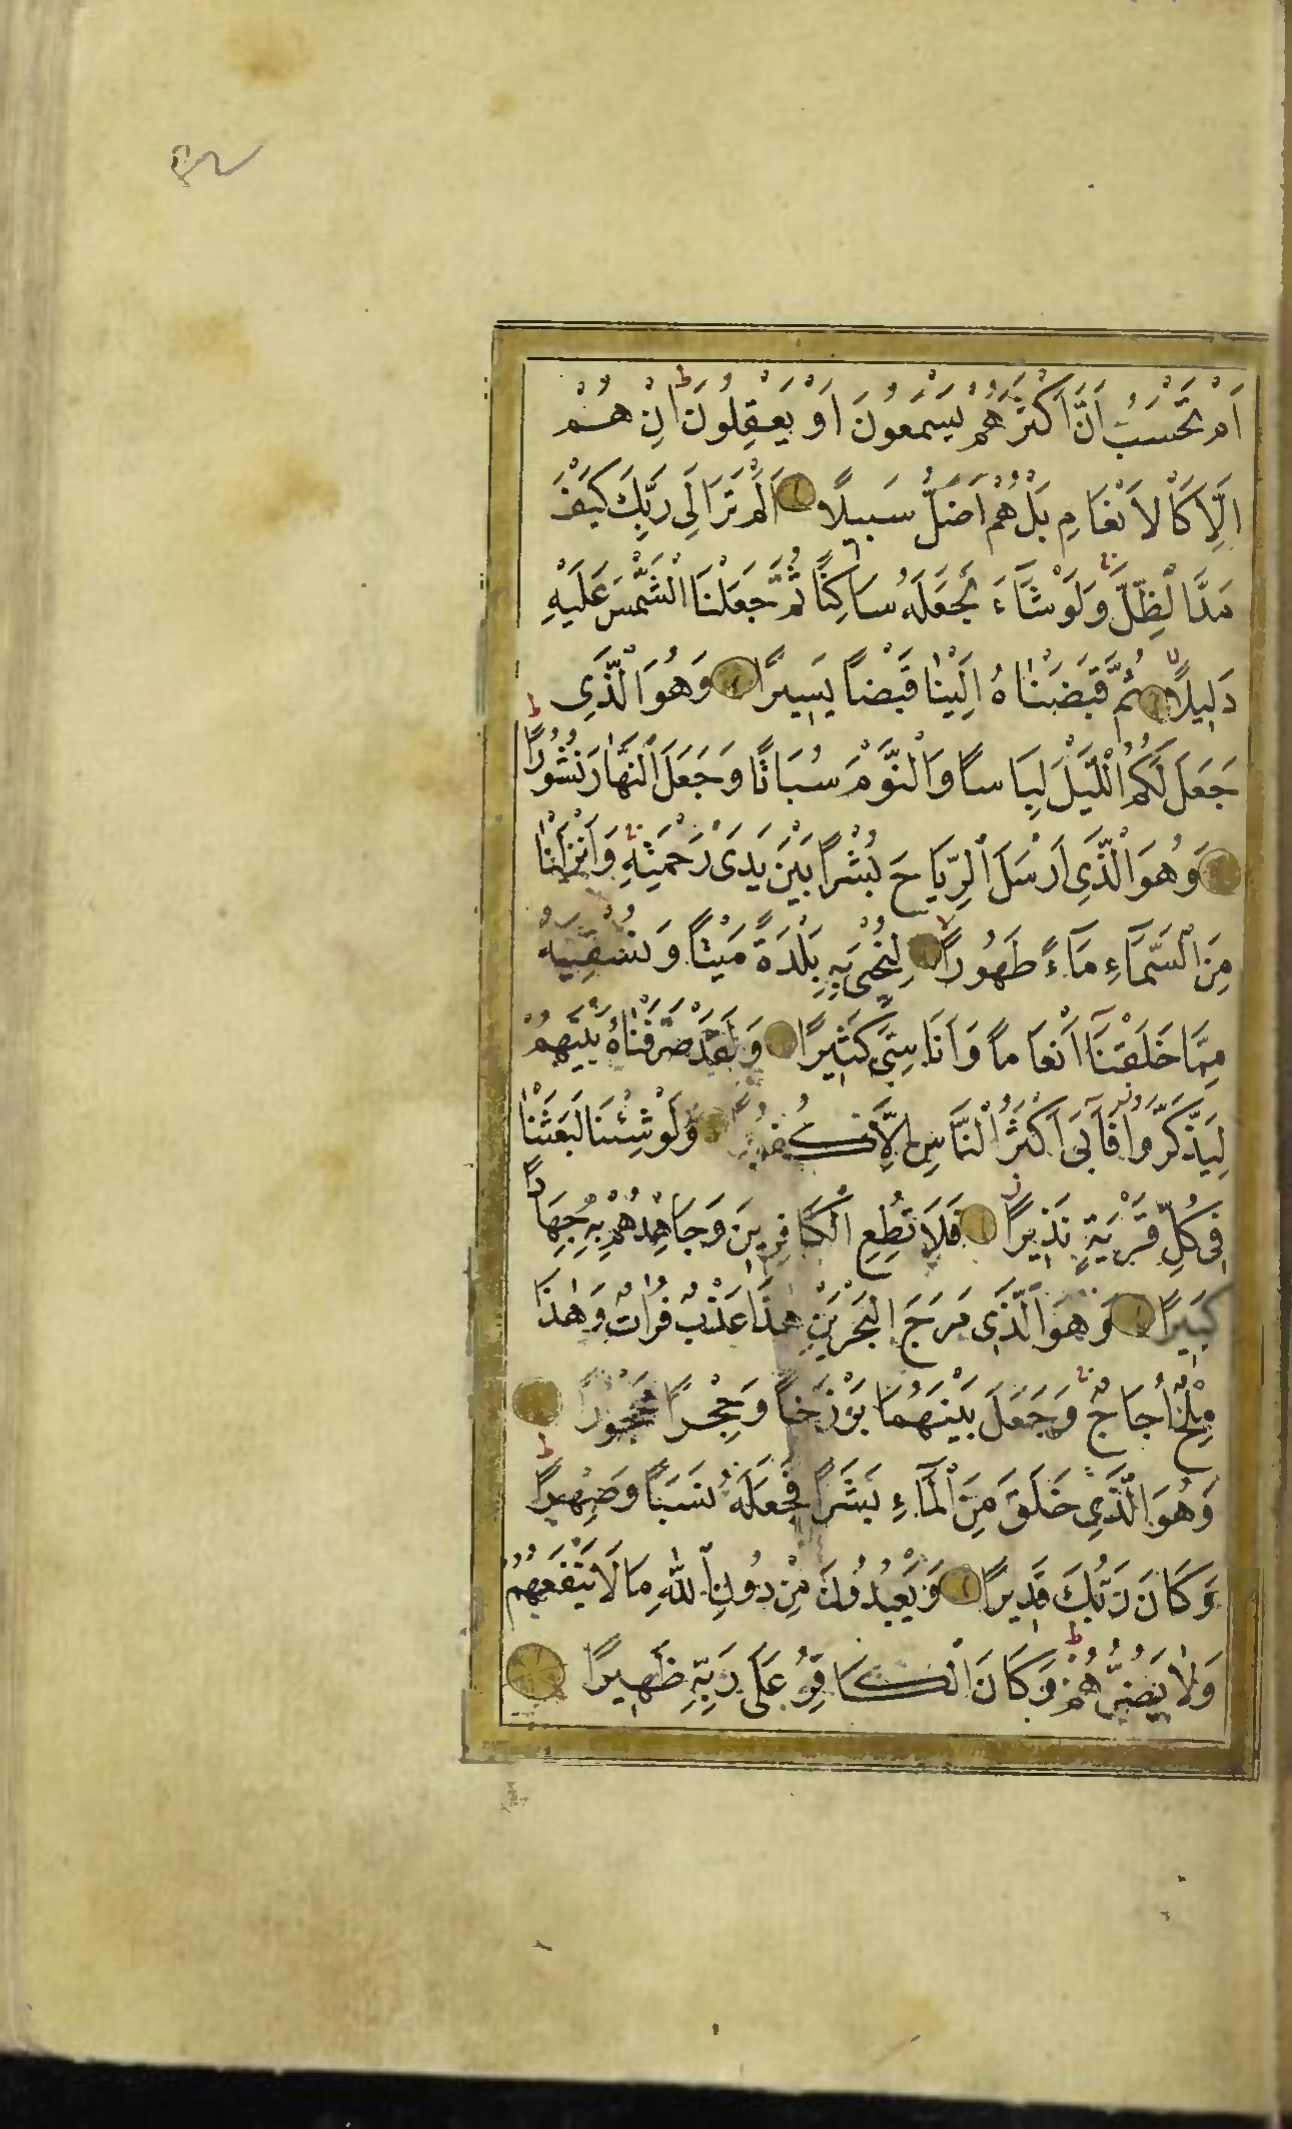 اَمْ تَحْسَبُ اَنَّ اَكْثَرَهُمْ يَسْمَعُونَ اَوْ يَعْقِلُونَ اِنْ هُمْ
اِلَّا كَالْاَنْعَامِ بَلْ هُمْ اَضَلُّ سَبِيلًا اَلَمْ تَرَ اِلٰى رَبِّكَ كَيْفَ
مَدَّ الظِّلَّ وَلَوْ شَآءَ لَجَعَلَهُ سَاكِنًا ثُمَّ جَعَلْنَا الشَّمْسَ عَلَيْهِ
دَلِيلًا ثُمَّ قَبَضْنَاهُ اِلَيْنَا قَبْضًا يَسِيرًا وَهُوَ الَّذِى
جَعَلَ لَكُمُ الَّيْلَ لِبَاسًا وَالنَّوْمَ سُبَاتًا وَجَعَلَ النَّهَارَ نُشُورًا
وَهُوَ الَّذِى اَرْسَلَ الرِّيَاحَ بُشْرًا بَيْنَ يَدَىْ رَحْمَتِهِ وَاَنْزَلْنَا
مِنَ السَّمَآءِ مَآءً طَهُورًا لِنُحْيِىَ بِهِ بَلْدَةً مَيْتًا وَنُسْقِيَهُ
مِمَّا خَلَقْنَآ اَنْعَامًا وَاَنَاسِىَّ كَثِيرًا وَلَقَدْ صَرَّفْنَاهُ بَيْنَهُمْ
لِيَذَّكَّرُوا فَاَبٰىٓ اَكْثَرُ النَّاسِ اِلَّا كُفُورًا وَلَوْ شِئْنَا لَبَعَثْنَا
فِى كُلِّ قَرْيَةٍ نَذِيرًا فَلَا تُطِعِ الْكَافِرِينَ وَجَاهِدْهُمْ بِهِ جِهَادًا
كَبِيرًا وَهُوَ الَّذِى مَرَجَ الْبَحْرَيْنِ هٰذَا عَذْبٌ فُرَاتٌ وَهٰذَا
مِلْحٌ اُجَاجٌ وَجَعَلَ بَيْنَهُمَا بَرْزَخًا وَحِجْرًا مَحْجُورًا
وَهُوَ الَّذِى خَلَقَ مِنَ الْمَآءِ بَشَرًا فَجَعَلَهُ نَسَبًا وَصِهْرًا
وَكَانَ رَبُّكَ قَدِيرًا وَيَعْبُدُونَ مِنْ دُونِ اللّٰهِ مَا لَا يَنْفَعُهُمْ
وَلَا يَضُرُّهُمْ وَكَانَ الْكَافِرُ عَلٰى رَبِّهِ ظَهِيرًا